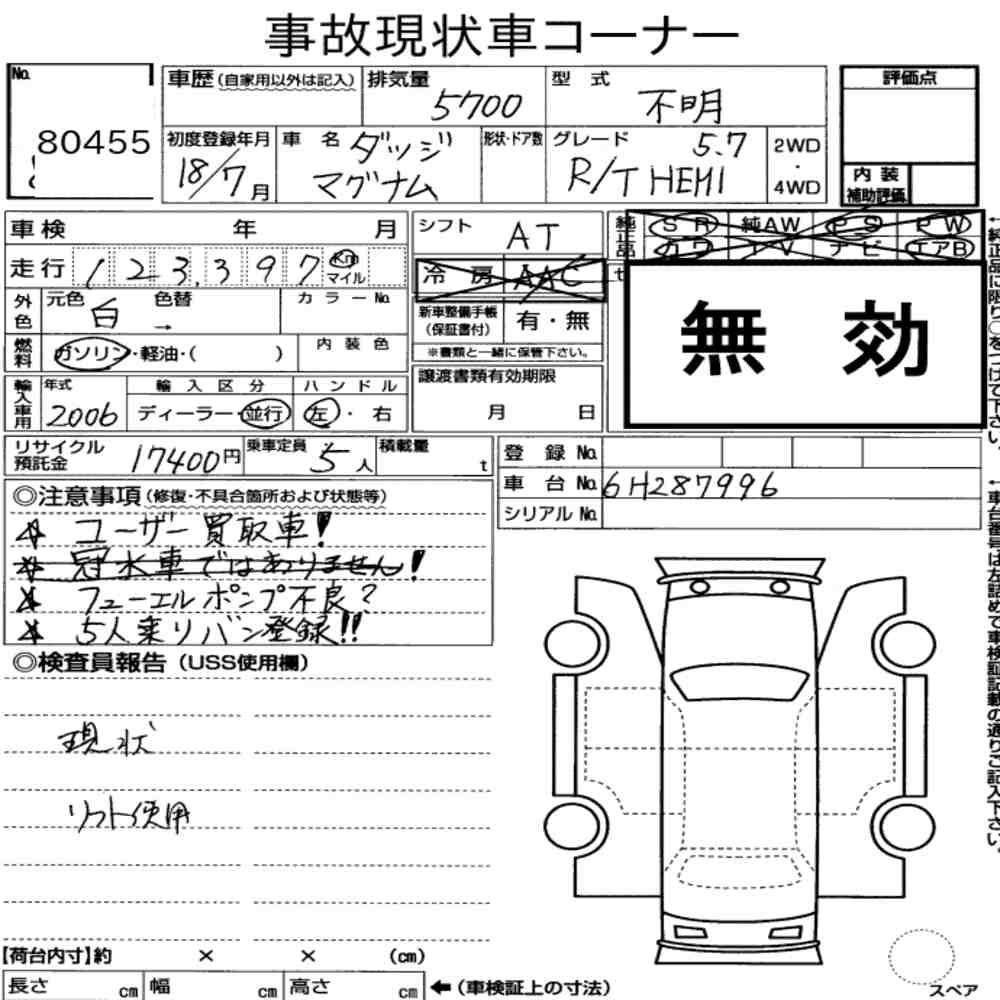 事故現状車コーナー
No. 80455
車歴(自家用以外は記入) 排気量 5700 型式 不明 評価点
初度登録年月 18/7月 車名 ダッジ マグナム 形状・ドア数 グレード 5.7 R/T HEMI 2WD・4WD 内装補助評価
車検 年 月 シフト AT 純正品 SR 純AW PS PW
走行 123,397 Km マイル 冷房 AAC TV ナビ エアB
外色 元色 白 色替 → カラーNo. 新車整備手帳(保証書付) 有・無 無効
燃料 ガソリン・軽油・( ) 内装色 ※書類と一緒に保管下さい。
輸入車用 年式 2006 輸入区分 ディーラー・並行 ハンドル 左・右 譲渡書類有効期限 月 日
リサイクル預託金 17400円 乗車定員 5人 積載量 t 登録No.
車台No. 6H287996
シリアルNo.
◎注意事項(修復・不具合箇所および状態等)
☆ ユーザー買取車!
☆ 冠水車ではありません!
☆ フューエルポンプ不良?
☆ 5人乗りバン登録!!
◎検査員報告(USS使用欄)
現状
リフト使用
【荷台内寸】約 × × (cm)
長さ cm 幅 cm 高さ cm ←(車検証上の寸法)
スペア
←純正品に限り○をつけて下さい。
←車台番号は左詰めで車検証記載の通りご記入下さい。